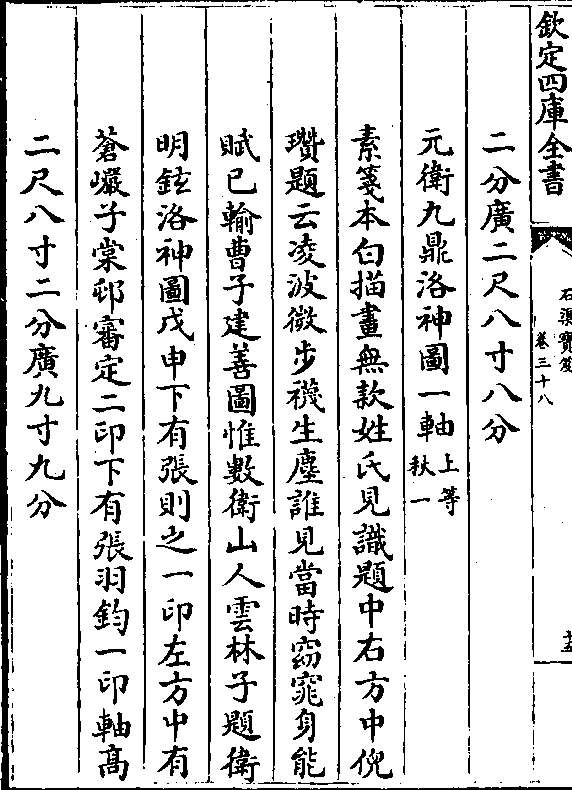 欽定四庫全書
石渠寶笈
卷三十八
二分廣二尺八寸八分
元衛九鼎洛神圖一軸上等秋一
素箋本白描畫無款姓氏見識題中右方中倪
瓚題云凌波微步襪生塵誰見當時窈窕身能
賦已輸曹子建善圖惟數衛山人雲林子題衛
明鉉洛神圖戊申下有張則之一印左方中有
蒼巖子棠邨審定二印下有張羽鈞一印軸高
二尺八寸二分廣九寸九分